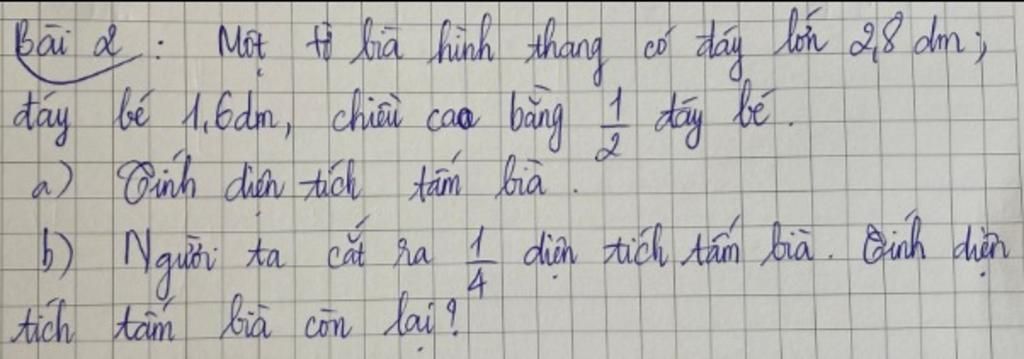 Bài 2 : Một tờ bìa hình thang có đáy lớn 2,8 dm;
đáy bé 1,6dm, chiều cao bằng 1/2 đáy bé.
a) Tính diện tích tấm bìa .
b) Người ta cắt ra 1/4 diện tích tấm bìa. Tính diện
tích tấm bìa còn lại?